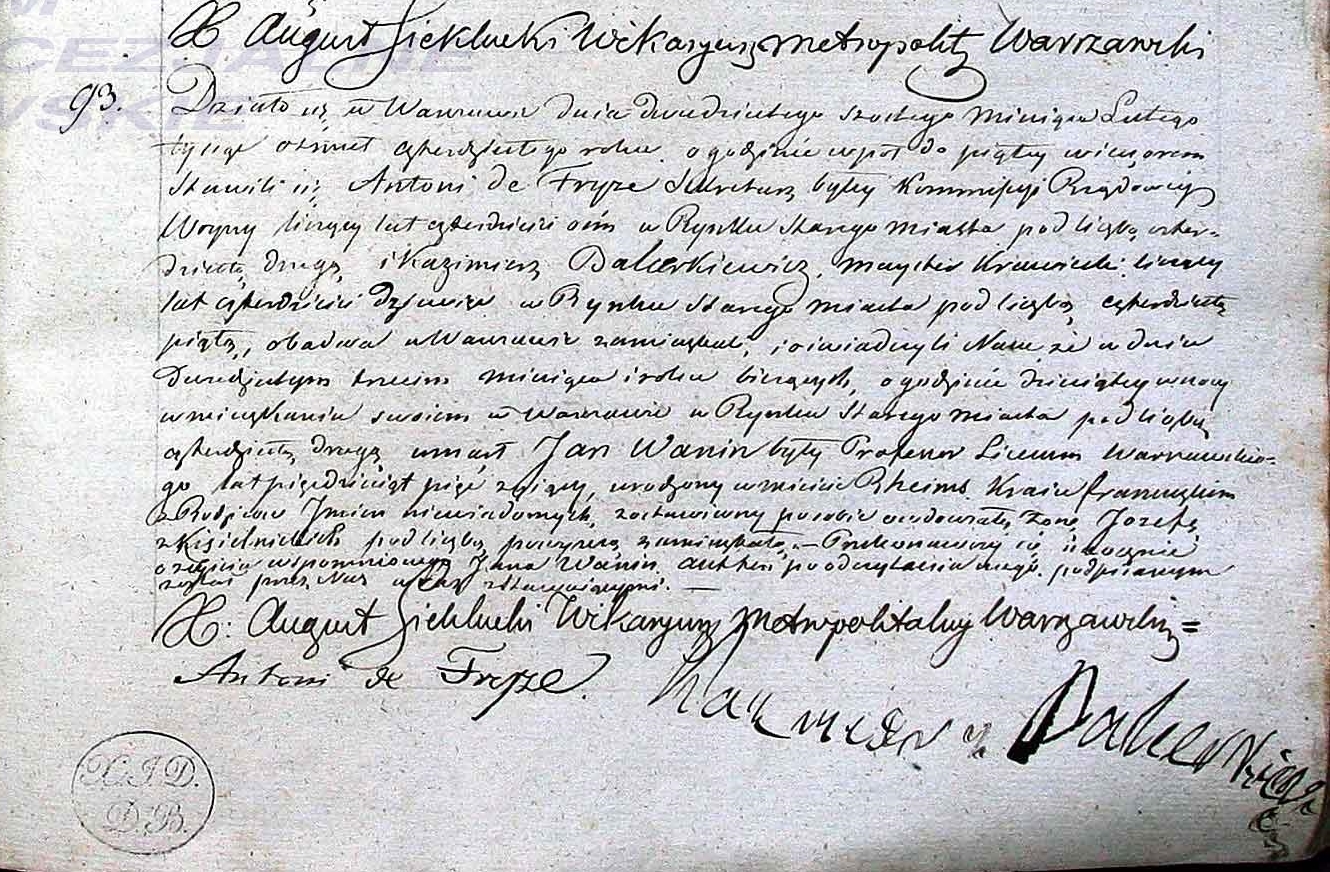 X. August Siekłucki Wikaryusz metropolity Warszawski
CEZJALNE
93. Działo się w Warszawie dnia dwudziestego szóstego Miesiąca Lutego
SKIE
tysiąc ośmset czterdziestego roku o godzinie wpół do piątej wieczorem
Stawili się Antoni de Fryze Sekretarz byłej Kommissyi Rządowej
Woyny liczący lat czterdzieści ośm w Rynku Starego Miasta pod liczbą czter-
dziestą drugą i Kazimierz Balcerkiewicz, Mayster Krawiecki liczący
lat czterdzieści dziewięć w Rynku Starego Miasta pod liczbą czterdziestą
piątą, obadwa w Warszawie zamieszkali, i oświadczyli Nam, że w dniu
Dwudziestym trzecim Miesiąca i roku bieżących, o godzinie dziesiątej w nocy
w mieszkaniu swoiem w Warszawie w Rynku Starego Miasta pod liczbą
czterdziestą drugą umarł Jan Wanin były Professor Liceum Warszawskie-
go lat pięćdziesiąt pięć mający, urodzony w mieście Rheims Kraiu francuzkiem
z Rodziców Imion niewiadomych, zostawiwszy po sobie owdowiałą żonę Jozefę
z Kisielnickich pod liczbą powyższą zamieszkałą. — Przekonawszy się naocznie
o zejściu wspomnionego Jana Wanin Akt ten po odczytaniu onego podpisanym
został przez Nas i stawaiącymi. —
X: August Siekłucki Wikaryusz Metropolitalny Warszawski =
Antoni de Fryze.
Kazmierz Balcerkiewicz
X. J. D.
D. B.